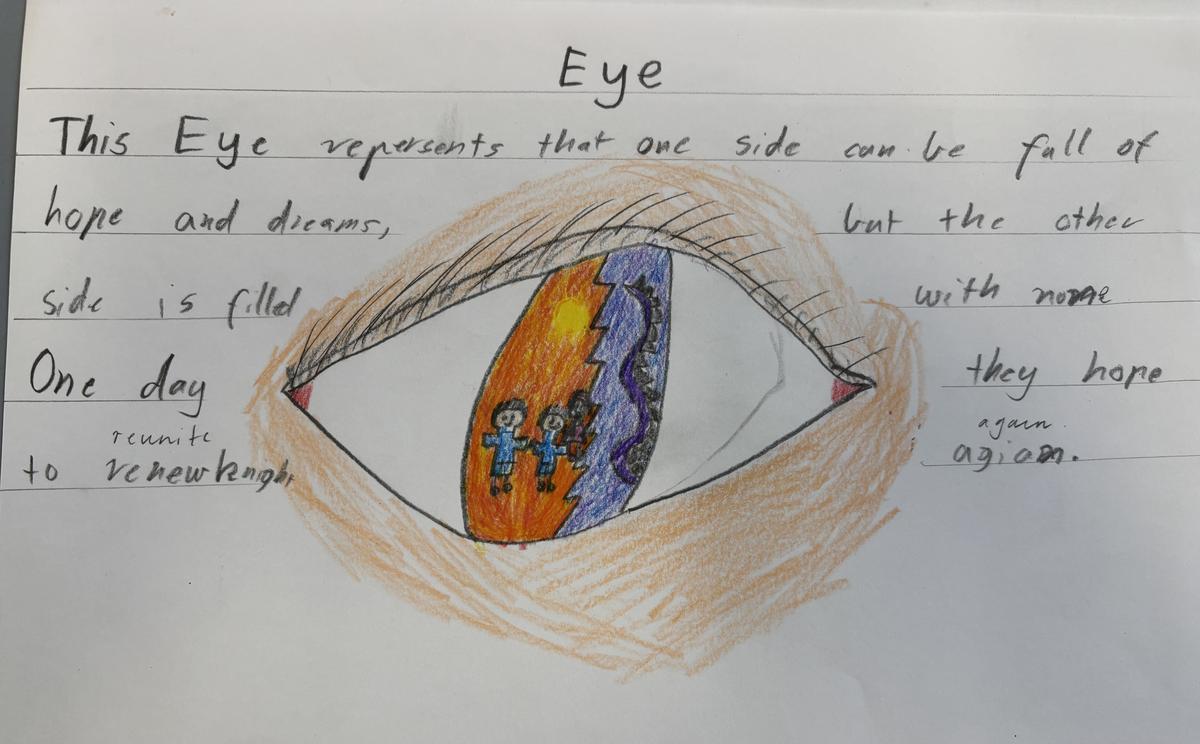 Eye
This Eye repersents that one side can be full of
hope and dreams, but the other
side is filled with none
One day they hope
reunite again.
to renewknight agian.